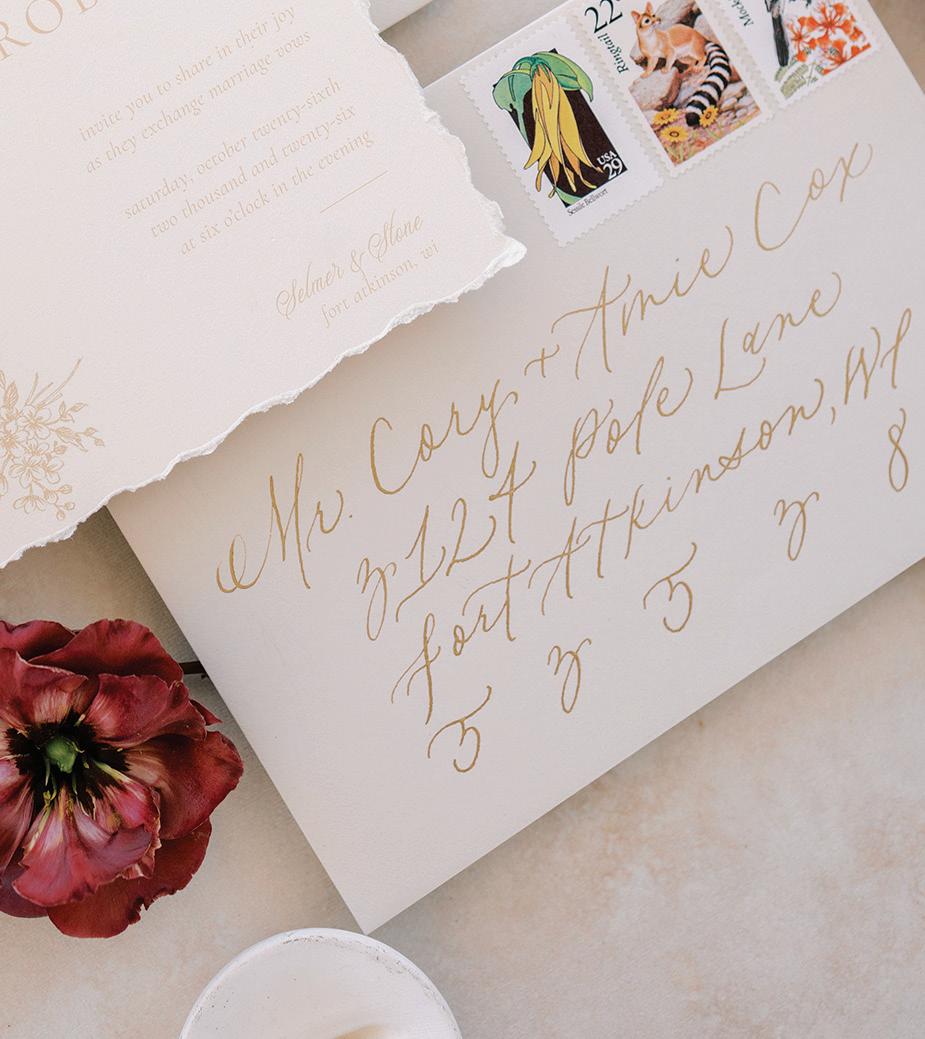 invite you to share in their joy
as they exchange marriage vows
saturday, october twenty-sixth
two thousand and twenty-six
at six o'clock in the evening
Selmer & Stone
fort atkinson, wi
USA
29
Sessile Bellwort
22
Ringtail
Mr. Cory + Amie Cox
3124 Pole Lane
Fort Atkinson, WI
5 3 5 3 8